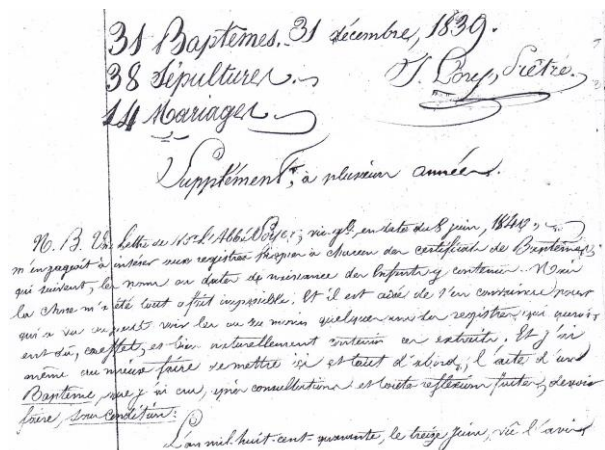 31 Baptêmes. 31 décembre, 1839.
38 Sépultures.
14 Mariages
Prêtre.
Supplément, à plusieurs années.
N. B. Une Lettre de Mr. L'Abbé, en date du 8 juin, 1840,
m'engageait à insérer aux registres à chacun des certificats de Baptêmes,
qui suivent, les noms ou dates de naissance des Enfants y contenus. Mais
la chose m'a été tout à fait impossible. Et il est aisé de s'en convaincre pour
qui a vu ou peut voir les ou au moins quelques uns des registres, qui
naturellement contenir ces extraits. Et j'ai
même cru mieux faire de mettre ici et tout d'abord, l'acte d'un
Baptême, que j'ai cru, après consultations et toutes réflexions faites, devoir
faire, sous condition:
L'an mil huit-cent-quarante, le treize Juin, vu l'avis